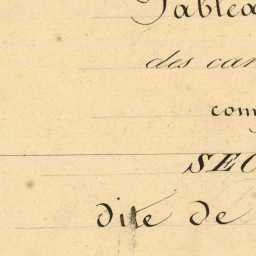 Tablea
des can
com
SEC
dite de